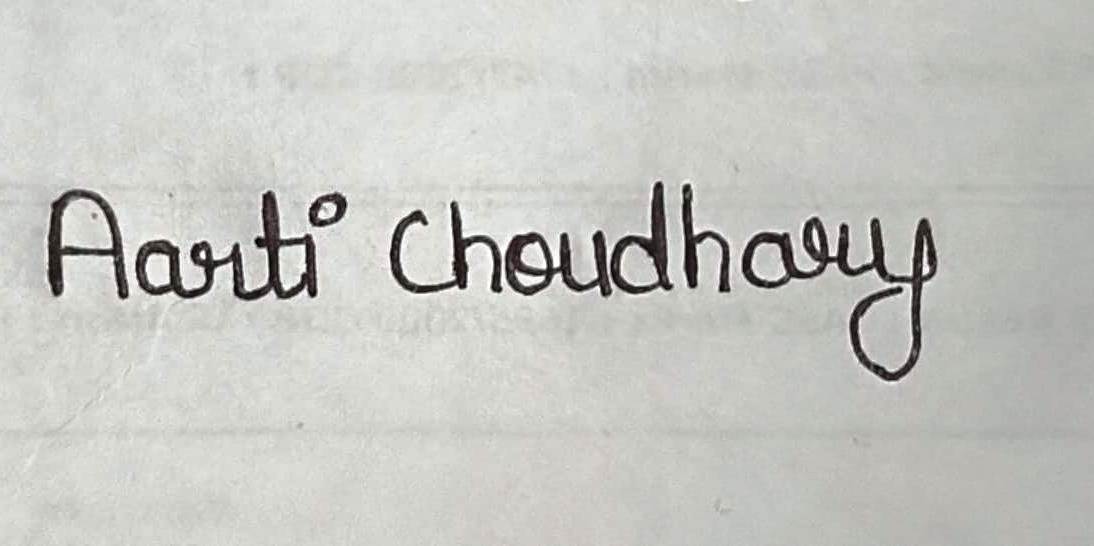 Aarti Choudhary